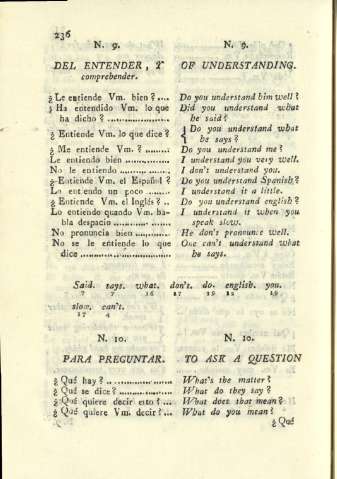 236
N. 9.
DEL ENTENDER, ó
comprehender.
¿Le entiende Vm. bien?....
¿Ha entendido Vm. lo que
ha dicho? ...................
¿Entiende Vm. lo que dice?
¿Me entiende Vm.? ........:
Le entiendo bien ...............
No le entiendo ...................
¿Entiende Vm. el Español?
Lo entiendo un poco .......
¿Entiende Vm. el Inglés? ..
Lo entiendo quando Vm. ha-
bla despacio ...................
No pronuncia bien ...........
No se le entiende lo que
dice ...............................
N. 9.
OF UNDERSTANDING.
Do you understand him well?
Did you understand what
he said?
Do you understand what
he says?
Do you understand me?
I understand you very well.
I don't understand you.
Do you understand Spanish?
I understand it a little.
Do you understand english?
I understand it when you
speak slow.
He don't pronounce well.
One can't understand what
he says.
Said. says. what. don't. do. english. you.
7 7 16 17 19 12 19
slow. can't.
17 4
N. 10.
PARA PREGUNTAR.
¿Qué hay? .......................
¿Qué se dice? ...................
¿Qué quiere decir esto? ...
¿Qué quiere Vm. decir? ...
N. 10.
TO ASK A QUESTION
What's the matter?
What do they say?
What does that mean?
What do you mean?
¿Qué